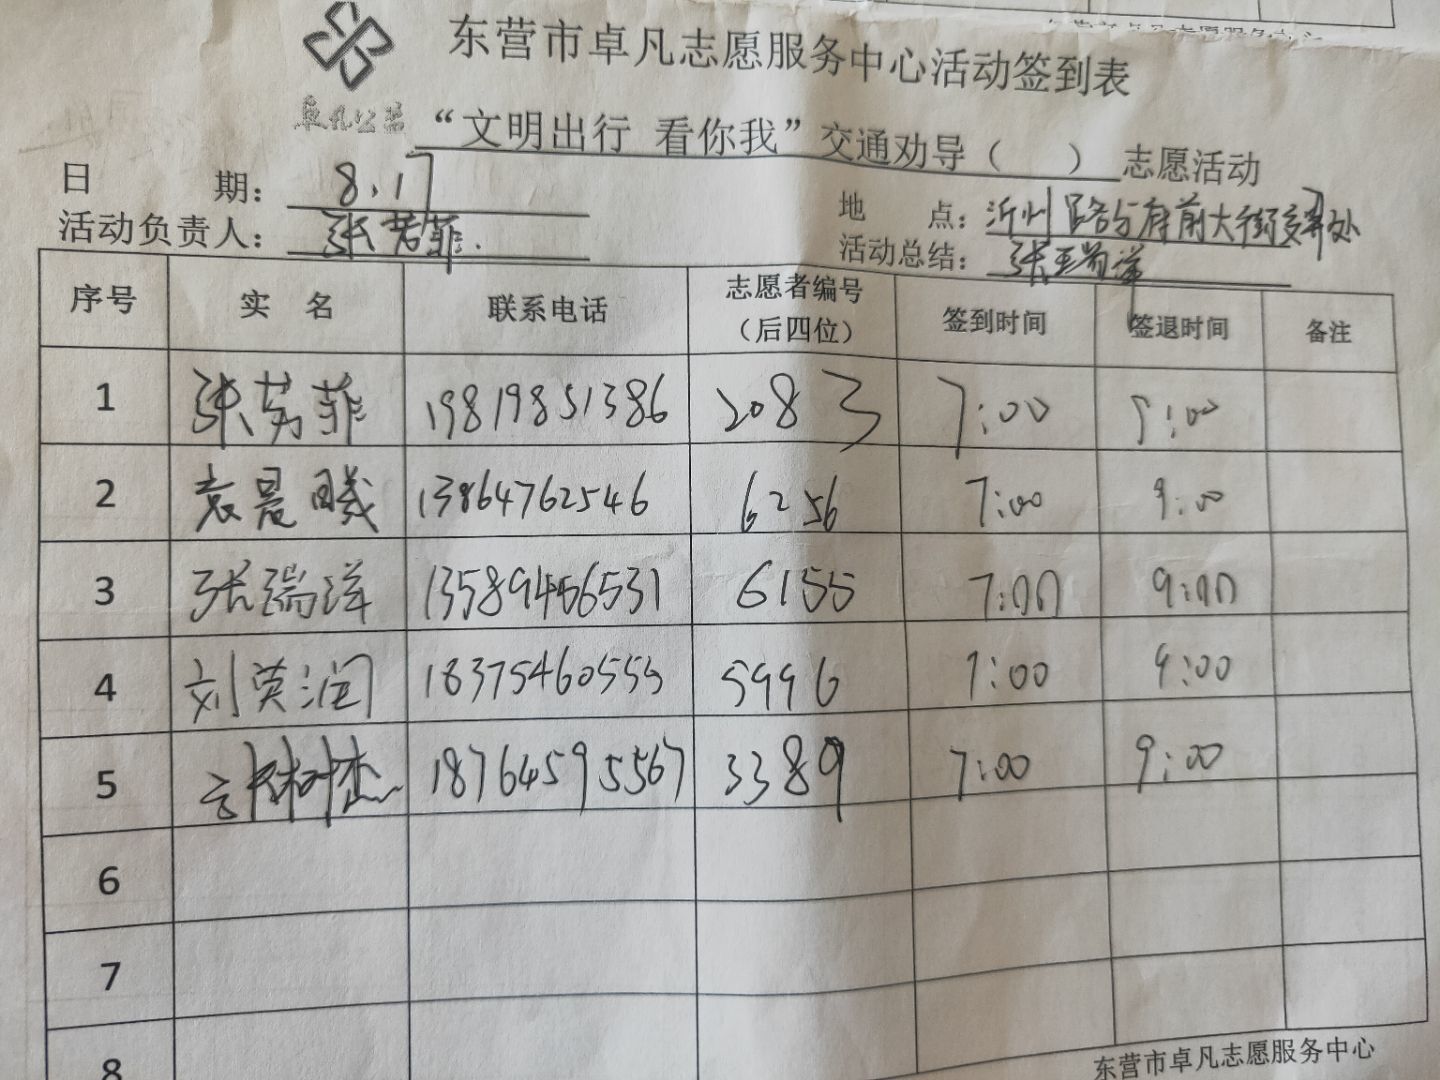 东营市卓凡志愿服务中心活动签到表
卓凡公益
“文明出行 看你我”交通劝导（ ）志愿活动
日 期：8.17
地 点：沂州路与府前大街交界处
活动负责人：张若菲.
活动总结：张瑞洋
序号 实 名 联系电话 志愿者编号（后四位） 签到时间 签退时间 备注
1 张若菲 19819851386 2083 7:00 9:00
2 袁晨曦 13864762546 6256 7:00 9:00
3 张瑞洋 13589456531 6155 7:00 9:00
4 刘英润 18375460555 5996 7:00 9:00
5 18764595567 3389 7:00 9:00
6
7
8
东营市卓凡志愿服务中心